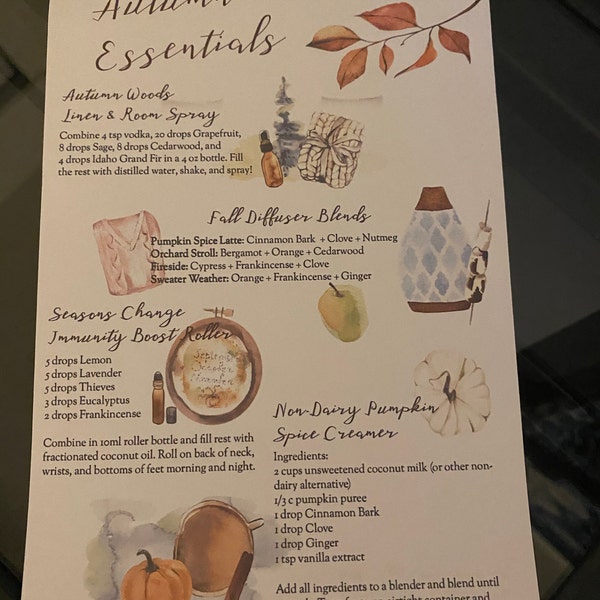 Autumn
Essentials
Autumn Woods
Linen & Room Spray
Combine 4 tsp vodka, 20 drops Grapefruit,
8 drops Sage, 8 drops Cedarwood, and
4 drops Idaho Grand Fir in a 4 oz bottle. Fill
the rest with distilled water, shake, and spray!
Fall Diffuser Blends
Pumpkin Spice Latte: Cinnamon Bark + Clove + Nutmeg
Orchard Stroll: Bergamot + Orange + Cedarwood
Fireside: Cypress + Frankincense + Clove
Sweater Weather: Orange + Frankincense + Ginger
Seasons Change
Immunity Boost Roller
5 drops Lemon
5 drops Lavender
5 drops Thieves
3 drops Eucalyptus
2 drops Frankincense
September
October
November
Combine in 10ml roller bottle and fill rest with
fractionated coconut oil. Roll on back of neck,
wrists, and bottoms of feet morning and night.
Non-Dairy Pumpkin
Spice Creamer
Ingredients:
2 cups unsweetened coconut milk (or other non-
dairy alternative)
1/3 c pumpkin puree
1 drop Cinnamon Bark
1 drop Clove
1 drop Ginger
1 tsp vanilla extract
Add all ingredients to a blender and blend until
container and